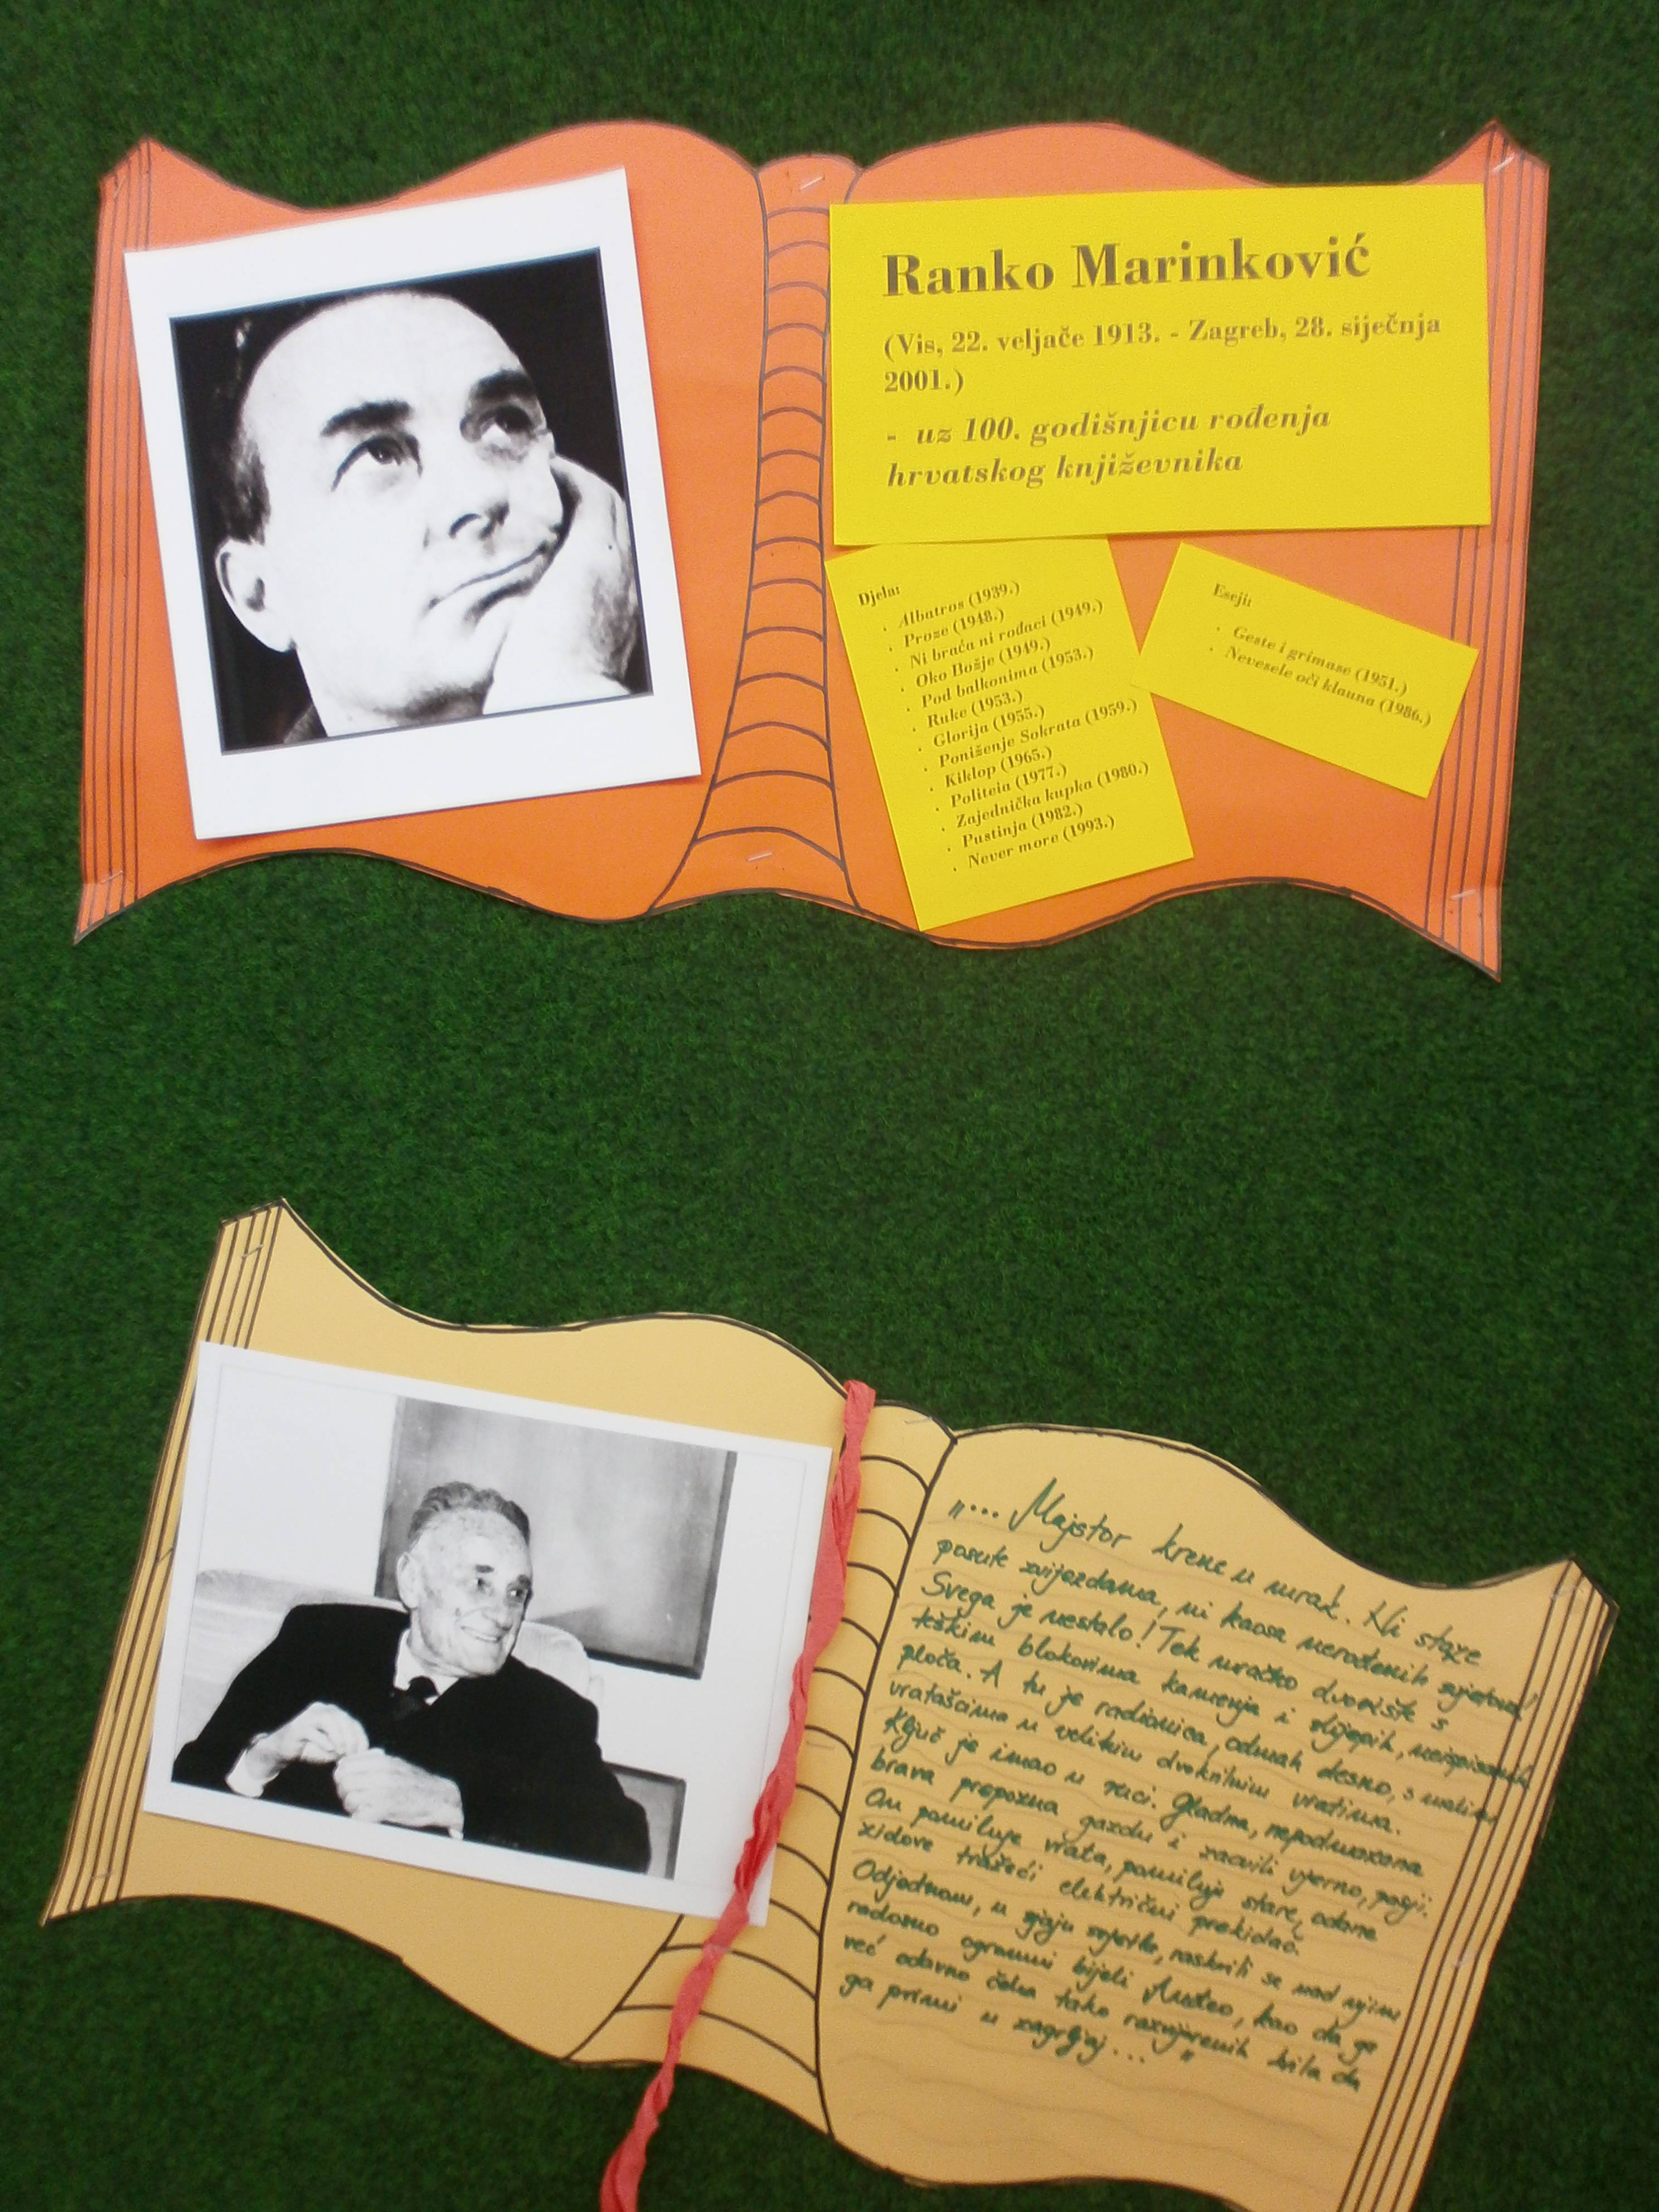 Ranko Marinković
(Vis, 22. veljače 1913. - Zagreb, 28. siječnja
2001.)
- uz 100. godišnjicu rođenja
hrvatskog književnika
Djela:
· Albatros (1939.)
· Proze (1948.)
· Ni braća ni rođaci (1949.)
· Oko Božje (1949.)
· Pod balkonima (1953.)
· Ruke (1953.)
· Glorija (1955.)
· Poniženje Sokrata (1959.)
· Kiklop (1965.)
· Politeia (1977.)
· Zajednička kupka (1980.)
· Pustinja (1982.)
· Never more (1993.)
Eseji:
· Geste i grimase (1951.)
· Nevesele oči klauna (1986.)
„... Majstor krene u mrak. Ni staze
posute zvijezdama, ni kaosa nerođenih svjetova!
Svega je nestalo! Tek mračko dvorište s
teškim blokovima kamenja i slijepih, neispisanih
ploča. A tu je radionica, odmah desno, s malim
vratašcima u velikim dvokrilnim vratima.
Ključ je imao u ruci. Gladna, nepodmazana
brava prepozna gazdu i zacvili vjerno, pasji.
On pomiluje vrata, pomiluje stare, odane
zidove tražeći električni prekidač.
Odjednom, u sjaju svjetla, raskrili se nad njim
radosno ogromni bijeli Anđeo, kao da ga
već odavno čeka tako razmjerenih krila da
ga primi u zagrljaj... "